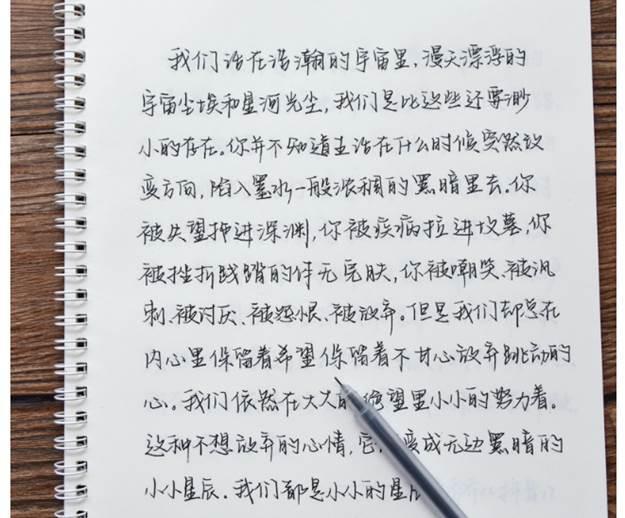 我们活在浩瀚的宇宙里,漫天漂浮的
宇宙尘埃和星河光尘,我们是比这些还要渺
小的存在。你并不知道生活在什么时候突然改
变方向,陷入墨水一般浓稠的黑暗里去。你
被失望拖进深渊,你被疾病拉进坟墓,你
被挫折践踏的体无完肤,你被嘲笑、被讽
刺、被讨厌、被怨恨、被放弃。但是我们却总在
内心里保留着希望保留着不甘心放弃跳动的
心。我们依然在大大的绝望里小小的努力着。
这种不想放弃的心情,它 变成无边黑暗的
小小星辰。我们都是小小的星